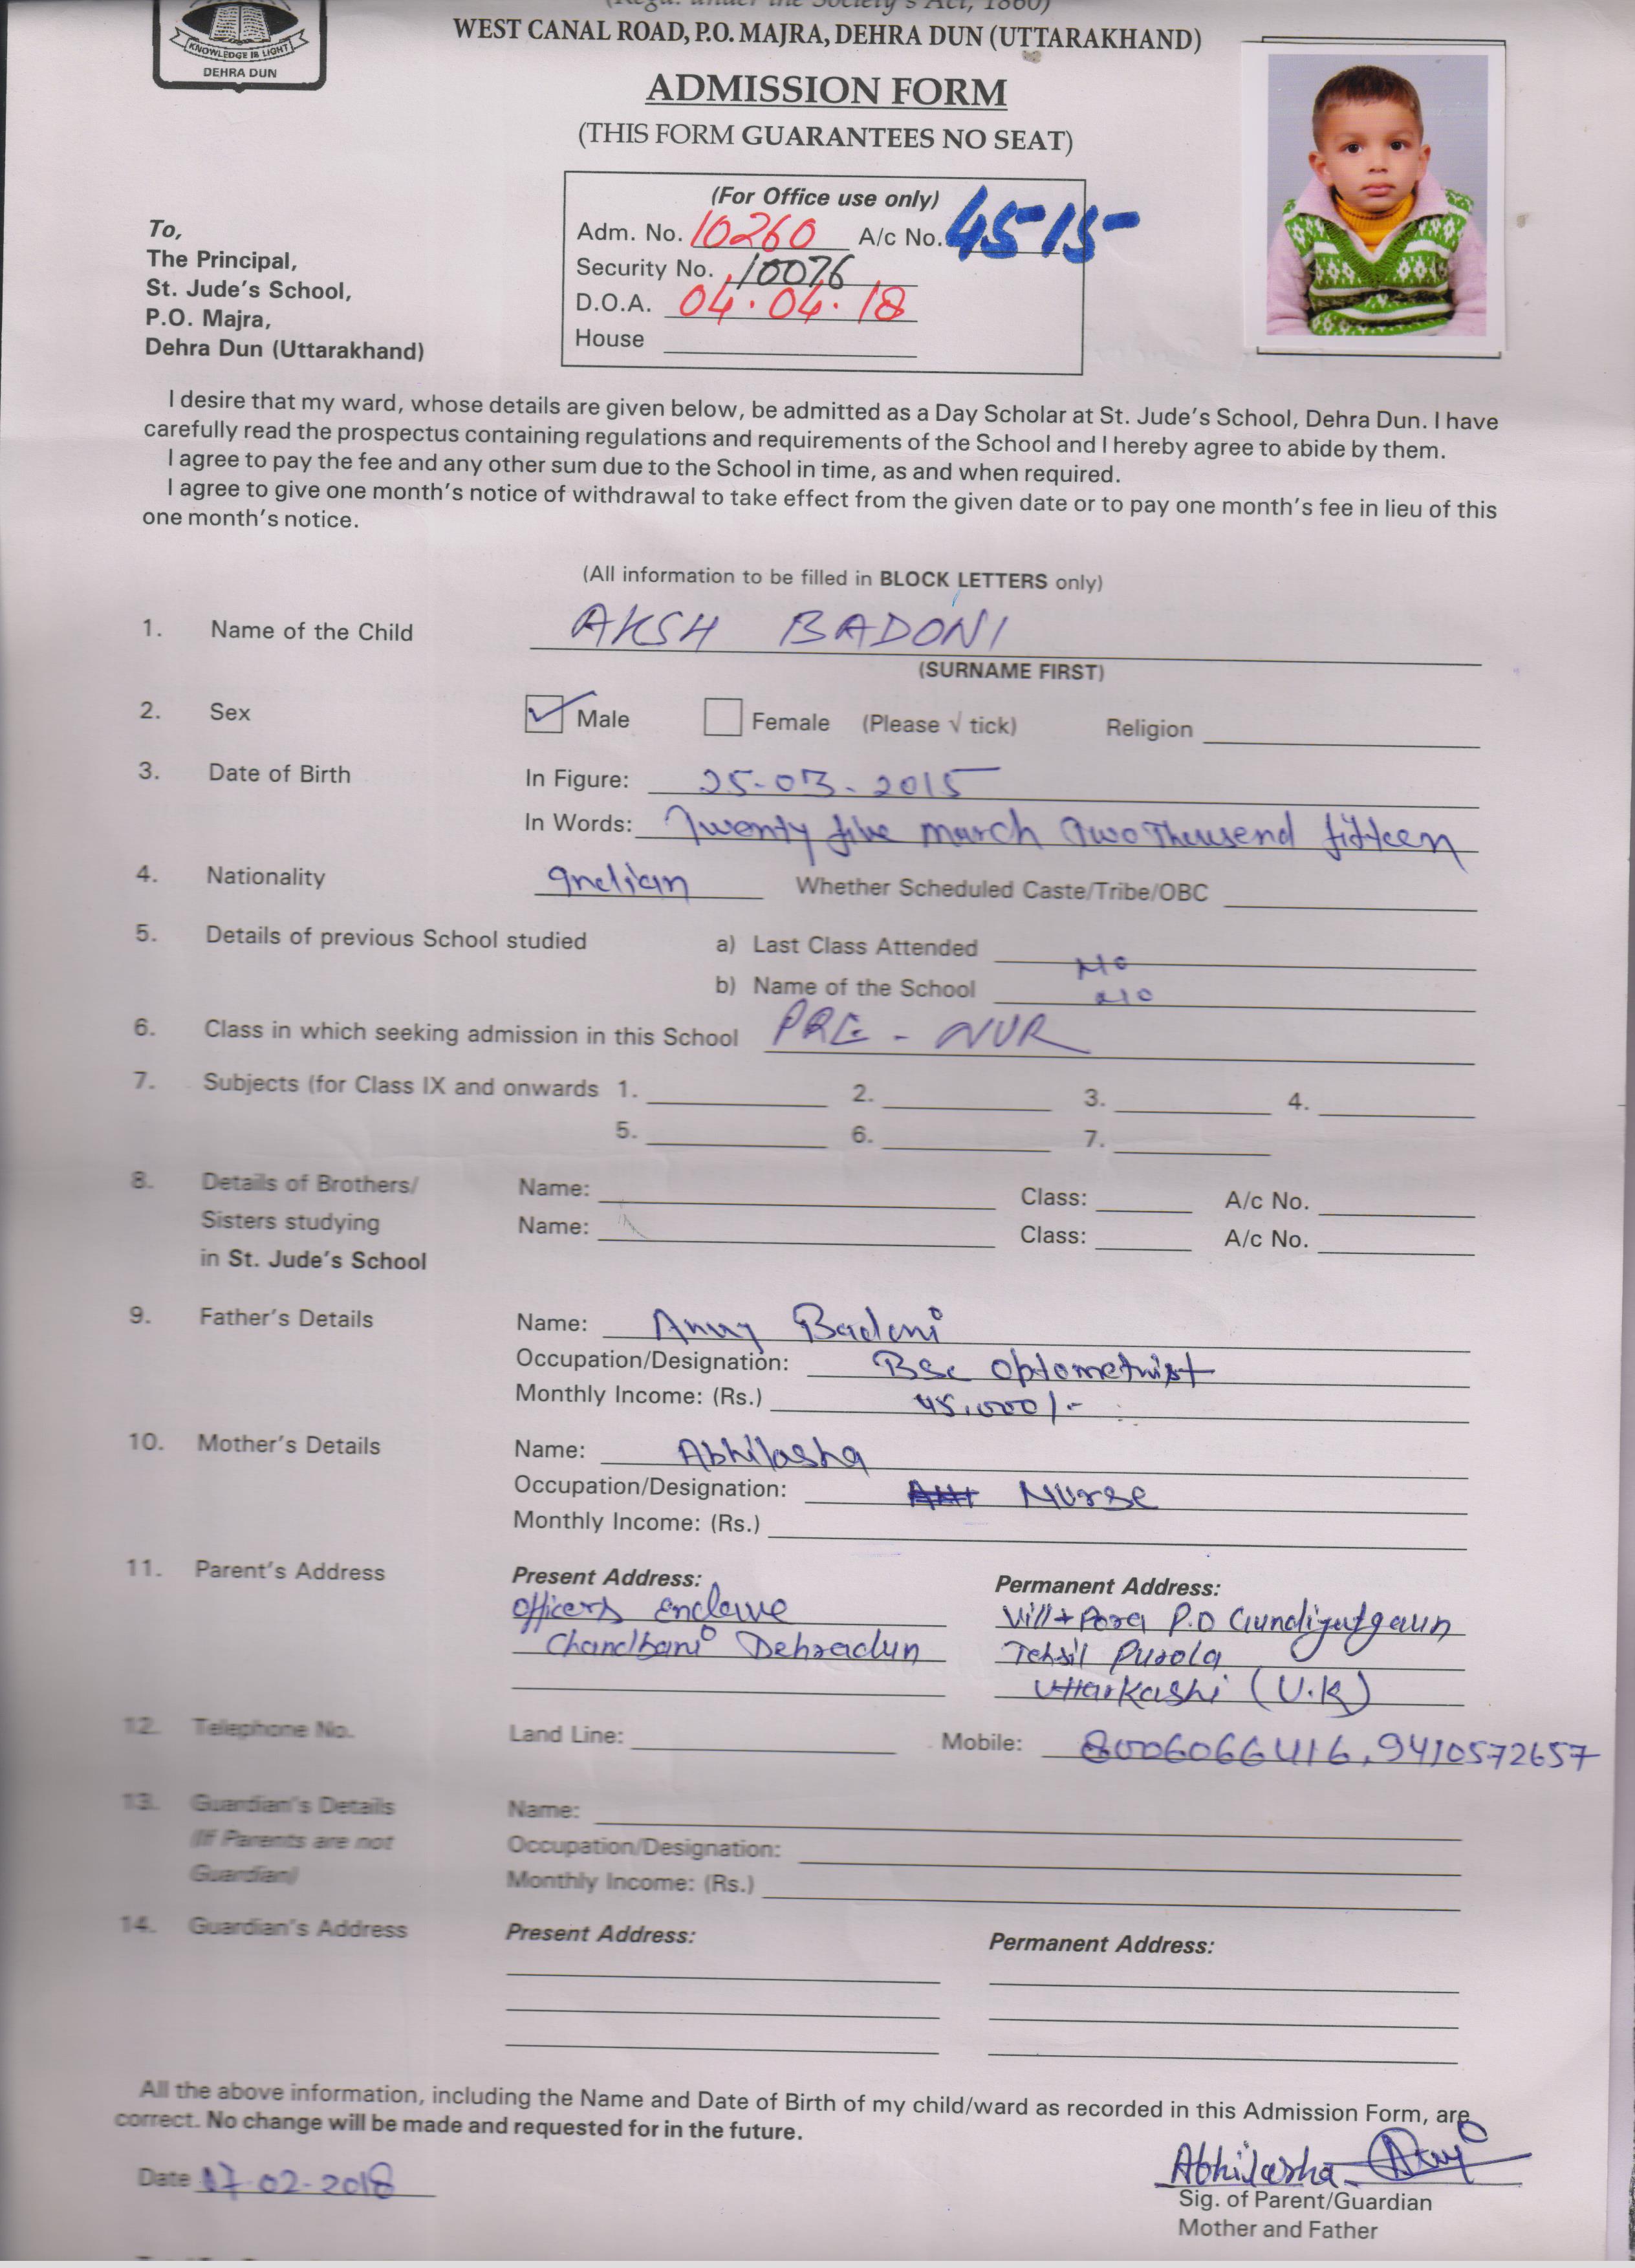 (Regd. under the Society's Act, 1860)
WEST CANAL ROAD, P.O. MAJRA, DEHRA DUN (UTTARAKHAND)
KNOWLEDGE IS LIGHT
DEHRA DUN
ADMISSION FORM
(THIS FORM GUARANTEES NO SEAT)
(For Office use only)
Adm. No. 10260 A/c No. 4515
Security No. 10076
D.O.A. 04.04.18
House
To,
The Principal,
St. Jude's School,
P.O. Majra,
Dehra Dun (Uttarakhand)
I desire that my ward, whose details are given below, be admitted as a Day Scholar at St. Jude's School, Dehra Dun. I have
carefully read the prospectus containing regulations and requirements of the School and I hereby agree to abide by them.
I agree to pay the fee and any other sum due to the School in time, as and when required.
I agree to give one month's notice of withdrawal to take effect from the given date or to pay one month's fee in lieu of this
one month's notice.
(All information to be filled in BLOCK LETTERS only)
1. Name of the Child AKSH BADONI
(SURNAME FIRST)
2. Sex Male Female (Please √ tick) Religion
3. Date of Birth In Figure: 25-03-2015
In Words: Twenty five march Two Thousend fifteen
4. Nationality Indian Whether Scheduled Caste/Tribe/OBC
5. Details of previous School studied a) Last Class Attended No
b) Name of the School No
6. Class in which seeking admission in this School PRE - NUR
7. Subjects (for Class IX and onwards 1. 2. 3. 4.
5. 6. 7.
8. Details of Brothers/ Name: Class: A/c No.
Sisters studying Name: Class: A/c No.
in St. Jude's School
9. Father's Details Name: Anuj Badoni
Occupation/Designation: Bsc Optometrist
Monthly Income: (Rs.) 45,000/-
10. Mother's Details Name: Abhilasha
Occupation/Designation: Nurse
Monthly Income: (Rs.)
11. Parent's Address Present Address: Permanent Address:
Officers Enclave Vill+Pora P.O Gundiyatgaun
Chandbani Dehradun Tehsil Purola
Uttarkashi (U.K)
12. Telephone No. Land Line: Mobile: 8006066416, 9410572657
13. Guardian's Details Name:
(If Parents are not Occupation/Designation:
Guardian) Monthly Income: (Rs.)
14. Guardian's Address Present Address: Permanent Address:
All the above information, including the Name and Date of Birth of my child/ward as recorded in this Admission Form, are
correct. No change will be made and requested for in the future.
Date 17-02-2018 Abhilasha Anuj
Sig. of Parent/Guardian
Mother and Father